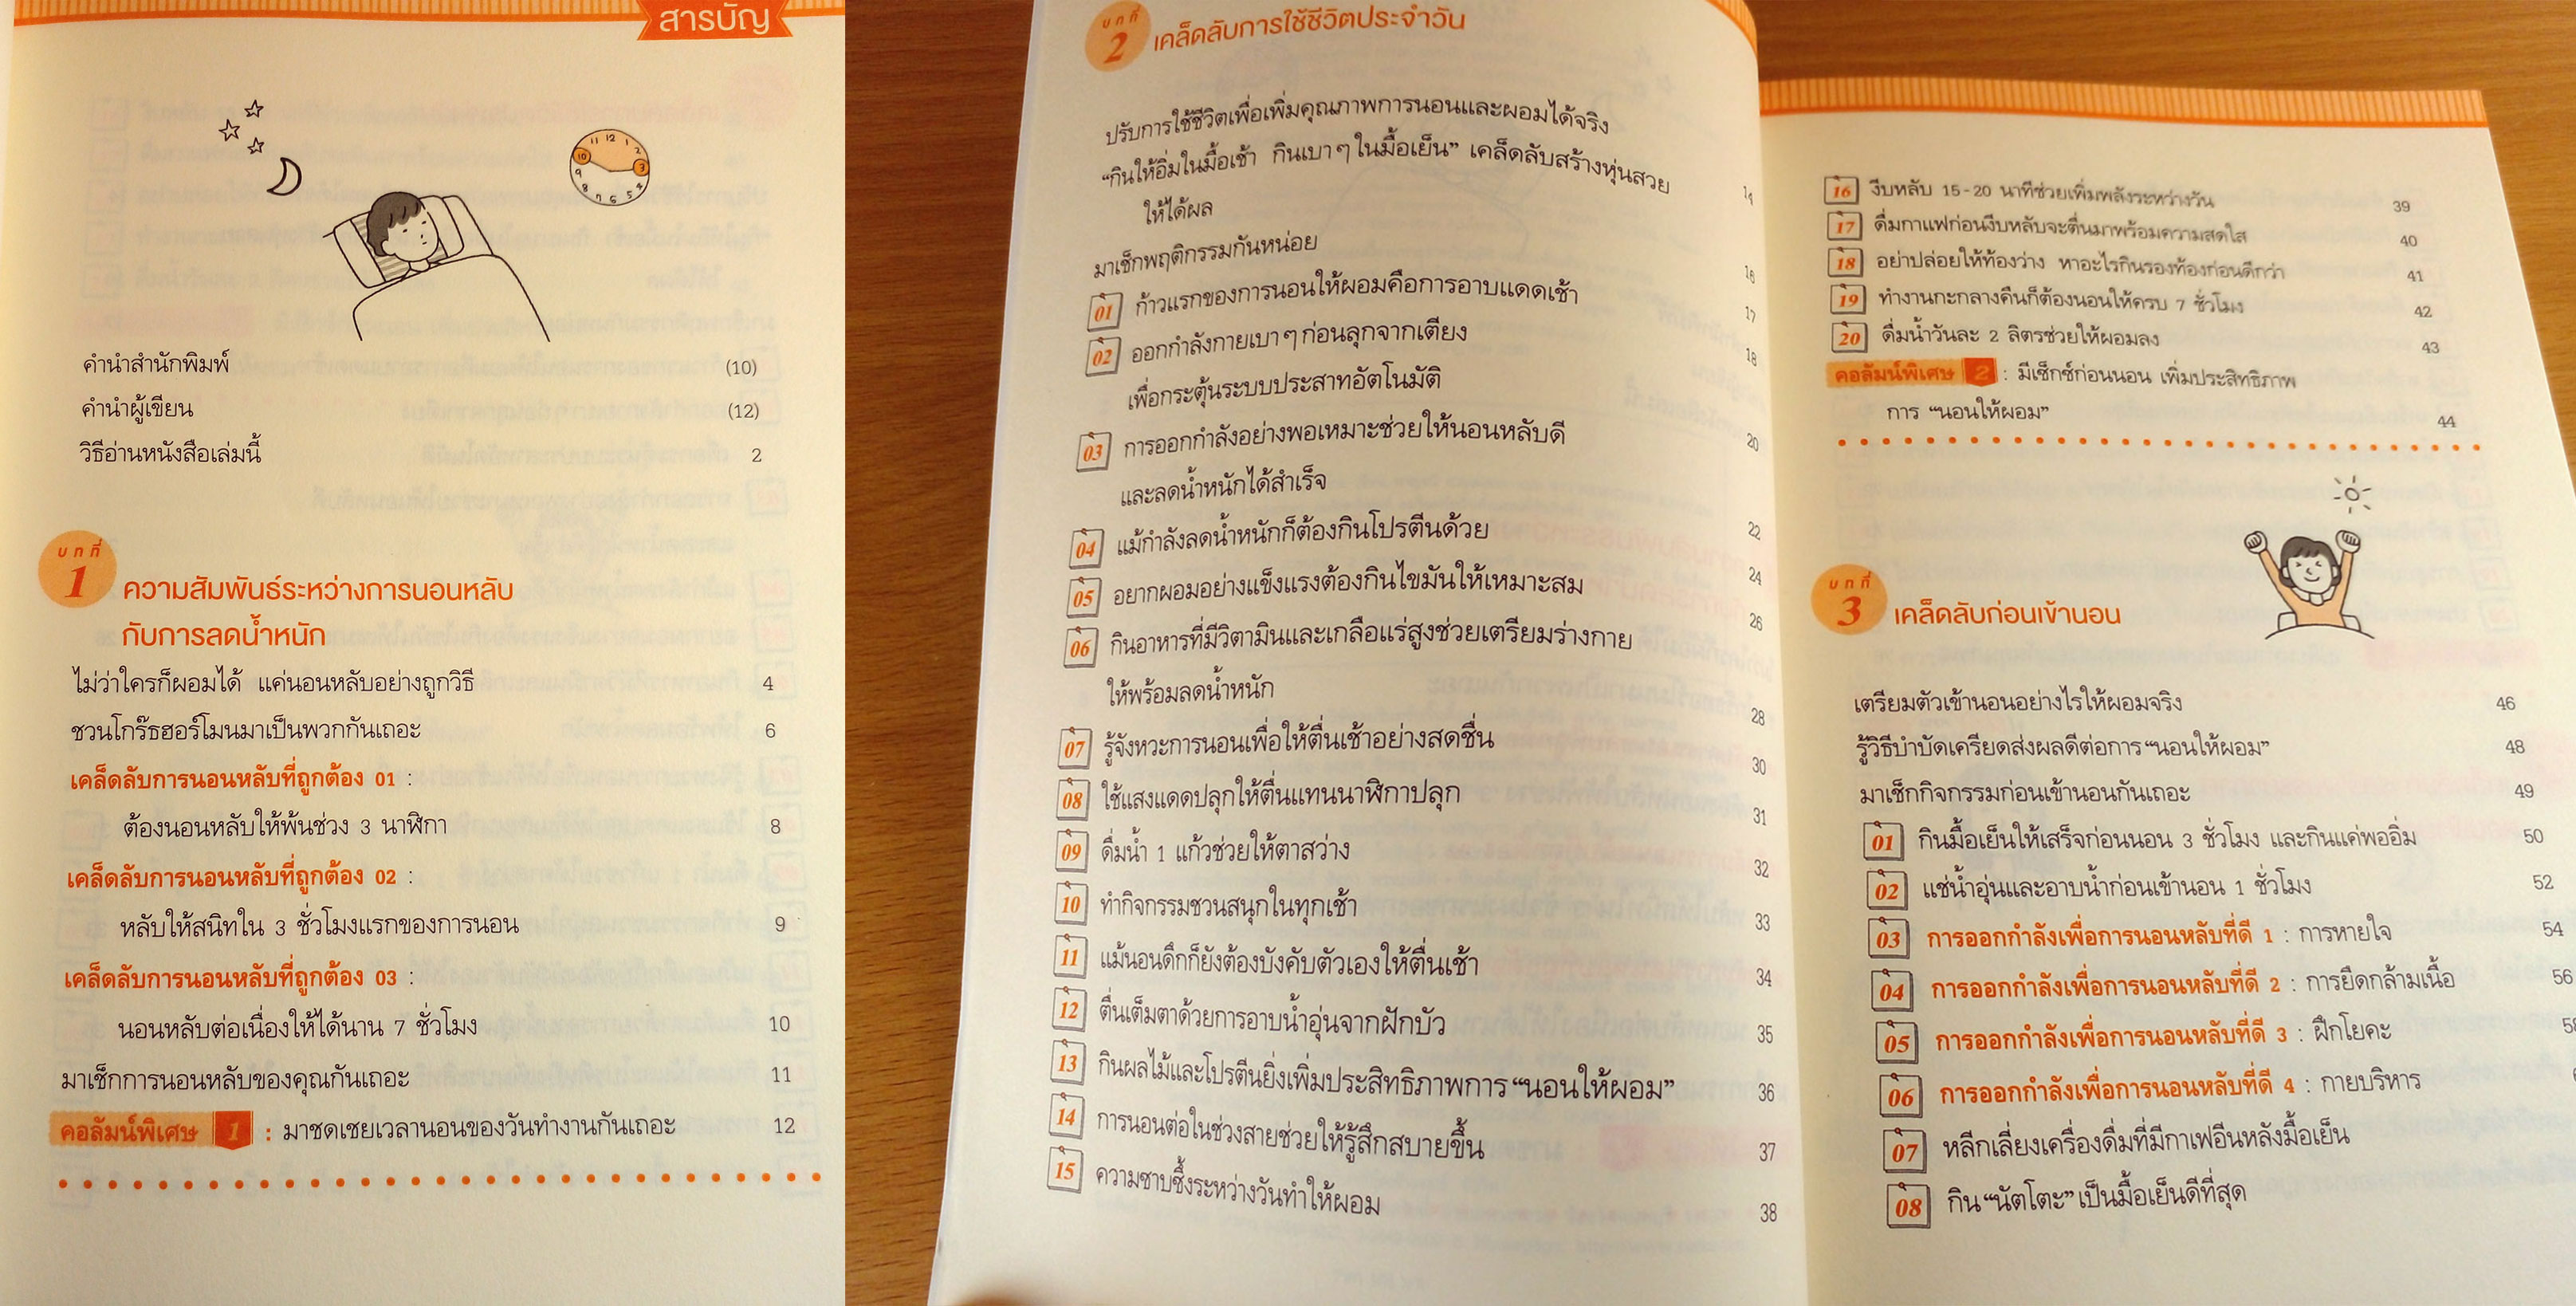 สารบัญ
12
คำนำสำนักพิมพ์ (10)
คำนำผู้เขียน (12)
วิธีอ่านหนังสือเล่มนี้ 2
บทที่
1 ความสัมพันธ์ระหว่างการนอนหลับ
กับการลดน้ำหนัก
ไม่ว่าใครก็ผอมได้ แค่นอนหลับอย่างถูกวิธี 4
ชวนโกร๊ธฮอร์โมนมาเป็นพวกกันเถอะ 6
เคล็ดลับการนอนหลับที่ถูกต้อง 01 :
ต้องนอนหลับให้พ้นช่วง 3 นาฬิกา 8
เคล็ดลับการนอนหลับที่ถูกต้อง 02 :
หลับให้สนิทใน 3 ชั่วโมงแรกของการนอน 9
เคล็ดลับการนอนหลับที่ถูกต้อง 03 :
นอนหลับต่อเนื่องให้ได้นาน 7 ชั่วโมง 10
มาเช็กการนอนหลับของคุณกันเถอะ 11
คอลัมน์พิเศษ 1 : มาชดเชยเวลานอนของวันทำงานกันเถอะ 12
บทที่
2 เคล็ดลับการใช้ชีวิตประจำวัน
ปรับการใช้ชีวิตเพื่อเพิ่มคุณภาพการนอนและผอมได้จริง 14
“กินให้อิ่มในมื้อเช้า กินเบาๆ ในมื้อเย็น” เคล็ดลับสร้างหุ่นสวย
ให้ได้ผล 16
มาเช็กพฤติกรรมกันหน่อย 17
01 ก้าวแรกของการนอนให้ผอมคือการอาบแดดเช้า 18
02 ออกกำลังกายเบาๆ ก่อนลุกจากเตียง
เพื่อกระตุ้นระบบประสาทอัตโนมัติ 20
03 การออกกำลังอย่างพอเหมาะช่วยให้นอนหลับดี
และลดน้ำหนักได้สำเร็จ 22
04 แม้กำลังลดน้ำหนักก็ต้องกินโปรตีนด้วย 24
05 อยากผอมอย่างแข็งแรงต้องกินไขมันให้เหมาะสม 26
06 กินอาหารที่มีวิตามินและเกลือแร่สูงช่วยเตรียมร่างกาย
ให้พร้อมลดน้ำหนัก 28
07 รู้จังหวะการนอนเพื่อให้ตื่นเช้าอย่างสดชื่น 30
08 ใช้แสงแดดปลุกให้ตื่นแทนนาฬิกาปลุก 31
09 ดื่มน้ำ 1 แก้วช่วยให้ตาสว่าง 32
10 ทำกิจกรรมชวนสนุกในทุกเช้า 33
11 แม้นอนดึกก็ยังต้องบังคับตัวเองให้ตื่นเช้า 34
12 ตื่นเต็มตาด้วยการอาบน้ำอุ่นจากฝักบัว 35
13 กินผลไม้และโปรตีนยิ่งเพิ่มประสิทธิภาพการ “นอนให้ผอม” 36
14 การนอนต่อในช่วงสายช่วยให้รู้สึกสบายขึ้น 37
15 ความซาบซึ้งระหว่างวันทำให้ผอม 38
16 งีบหลับ 15-20 นาทีช่วยเพิ่มพลังระหว่างวัน 39
17 ดื่มกาแฟก่อนงีบหลับจะตื่นมาพร้อมความสดใส 40
18 อย่าปล่อยให้ท้องว่าง หาอะไรกินรองท้องก่อนดีกว่า 41
19 ทำงานกะกลางคืนก็ต้องนอนให้ครบ 7 ชั่วโมง 42
20 ดื่มน้ำวันละ 2 ลิตรช่วยให้ผอมลง 43
คอลัมน์พิเศษ 2 : มีเซ็กซ์ก่อนนอน เพิ่มประสิทธิภาพ
การ “นอนให้ผอม” 44
บทที่
3 เคล็ดลับก่อนเข้านอน
เตรียมตัวเข้านอนอย่างไรให้ผอมจริง 46
รู้วิธีบำบัดเครียดส่งผลดีต่อการ “นอนให้ผอม” 48
มาเช็กกิจกรรมก่อนเข้านอนกันเถอะ 49
01 กินมื้อเย็นให้เสร็จก่อนนอน 3 ชั่วโมง และกินแค่พออิ่ม 50
02 แช่น้ำอุ่นและอาบน้ำก่อนเข้านอน 1 ชั่วโมง 52
03 การออกกำลังเพื่อการนอนหลับที่ดี 1 : การหายใจ 54
04 การออกกำลังเพื่อการนอนหลับที่ดี 2 : การยืดกล้ามเนื้อ 56
05 การออกกำลังเพื่อการนอนหลับที่ดี 3 : ฝึกโยคะ
06 การออกกำลังเพื่อการนอนหลับที่ดี 4 : กายบริหาร
07 หลีกเลี่ยงเครื่องดื่มที่มีกาเฟอีนหลังมื้อเย็น
08 กิน “นัตโตะ” เป็นมื้อเย็นดีที่สุด